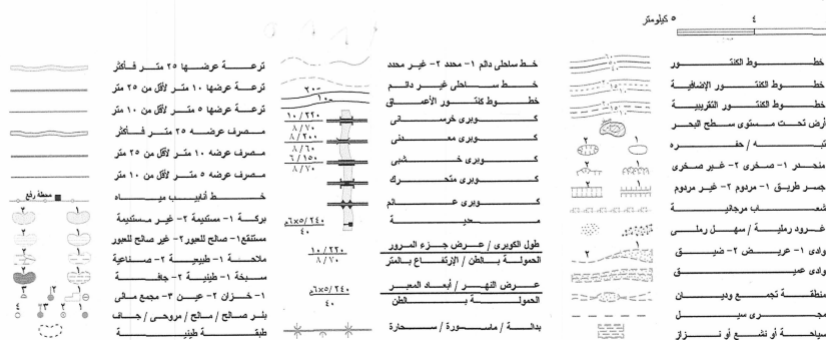 ٤ ٥ كيلومتر
خطوط الكنتور
خطوط الكنتور الإضافية
خطوط الكنتور التقريبية
أرض تحت مستوى سطح البحر
تبه / حفره
منحدر ١- صخرى ٢- غير صخرى
جسر طريق ١- مردوم ٢- غير مردوم
شعاب مرجانية
غرود رملية / سهل رملى
وادى ١- عريض ٢- ضيق
وادى عميق
منطقة تجمع وديان
مجرى سيل
سياحة أو نشع أو نزاز
خط ساحلى دائم ١- محدد ٢- غير محدد
خط ساحلى غير دائم
خطوط كنتور الأعماق
كوبرى خرسانى
كوبرى معدنى
كوبرى خشبى
كوبرى متحرك
كوبرى عائم
معدية
طول الكوبرى / عرض جزء المرور
الحمولة بالطن / الإرتفاع بالمتر
عرض النهر / أبعاد المعبر
الحمولة بالطن
بدالة / ماسورة / سحارة
١٠/٢٢٠
٨/٧٠
٨/٢٠٠
٨/٦٠
٦/١٥٠
٨/٧٠
٦×٥/٢٤٠
٤٠
١٠/٢٢٠
٨/٧٠
٦×٥/٢٤٠
٤٠
ترعة عرضها ٢٥ متر فأكثر
ترعة عرضها ١٠ متر لأقل من ٢٥ متر
ترعة عرضها ٥ متر لأقل من ١٠ متر
مصرف عرضه ٢٥ متر فأكثر
مصرف عرضه ١٠ متر لأقل من ٢٥ متر
مصرف عرضه ٥ متر لأقل من ١٠ متر
خط أنابيب مياه
محطة رفع
بركة ١- مستديمة ٢- غير مستديمة
مستنقع ١- صالح للعبور ٢- غير صالح للعبور
ملاحة ١- طبيعية ٢- صناعية
سبخة ١- طينية ٢- جافة
١- خزان ٢- عين ٣- مجمع مائى
بئر صالح / مالح / مروحى / جاف
طبقة طينية